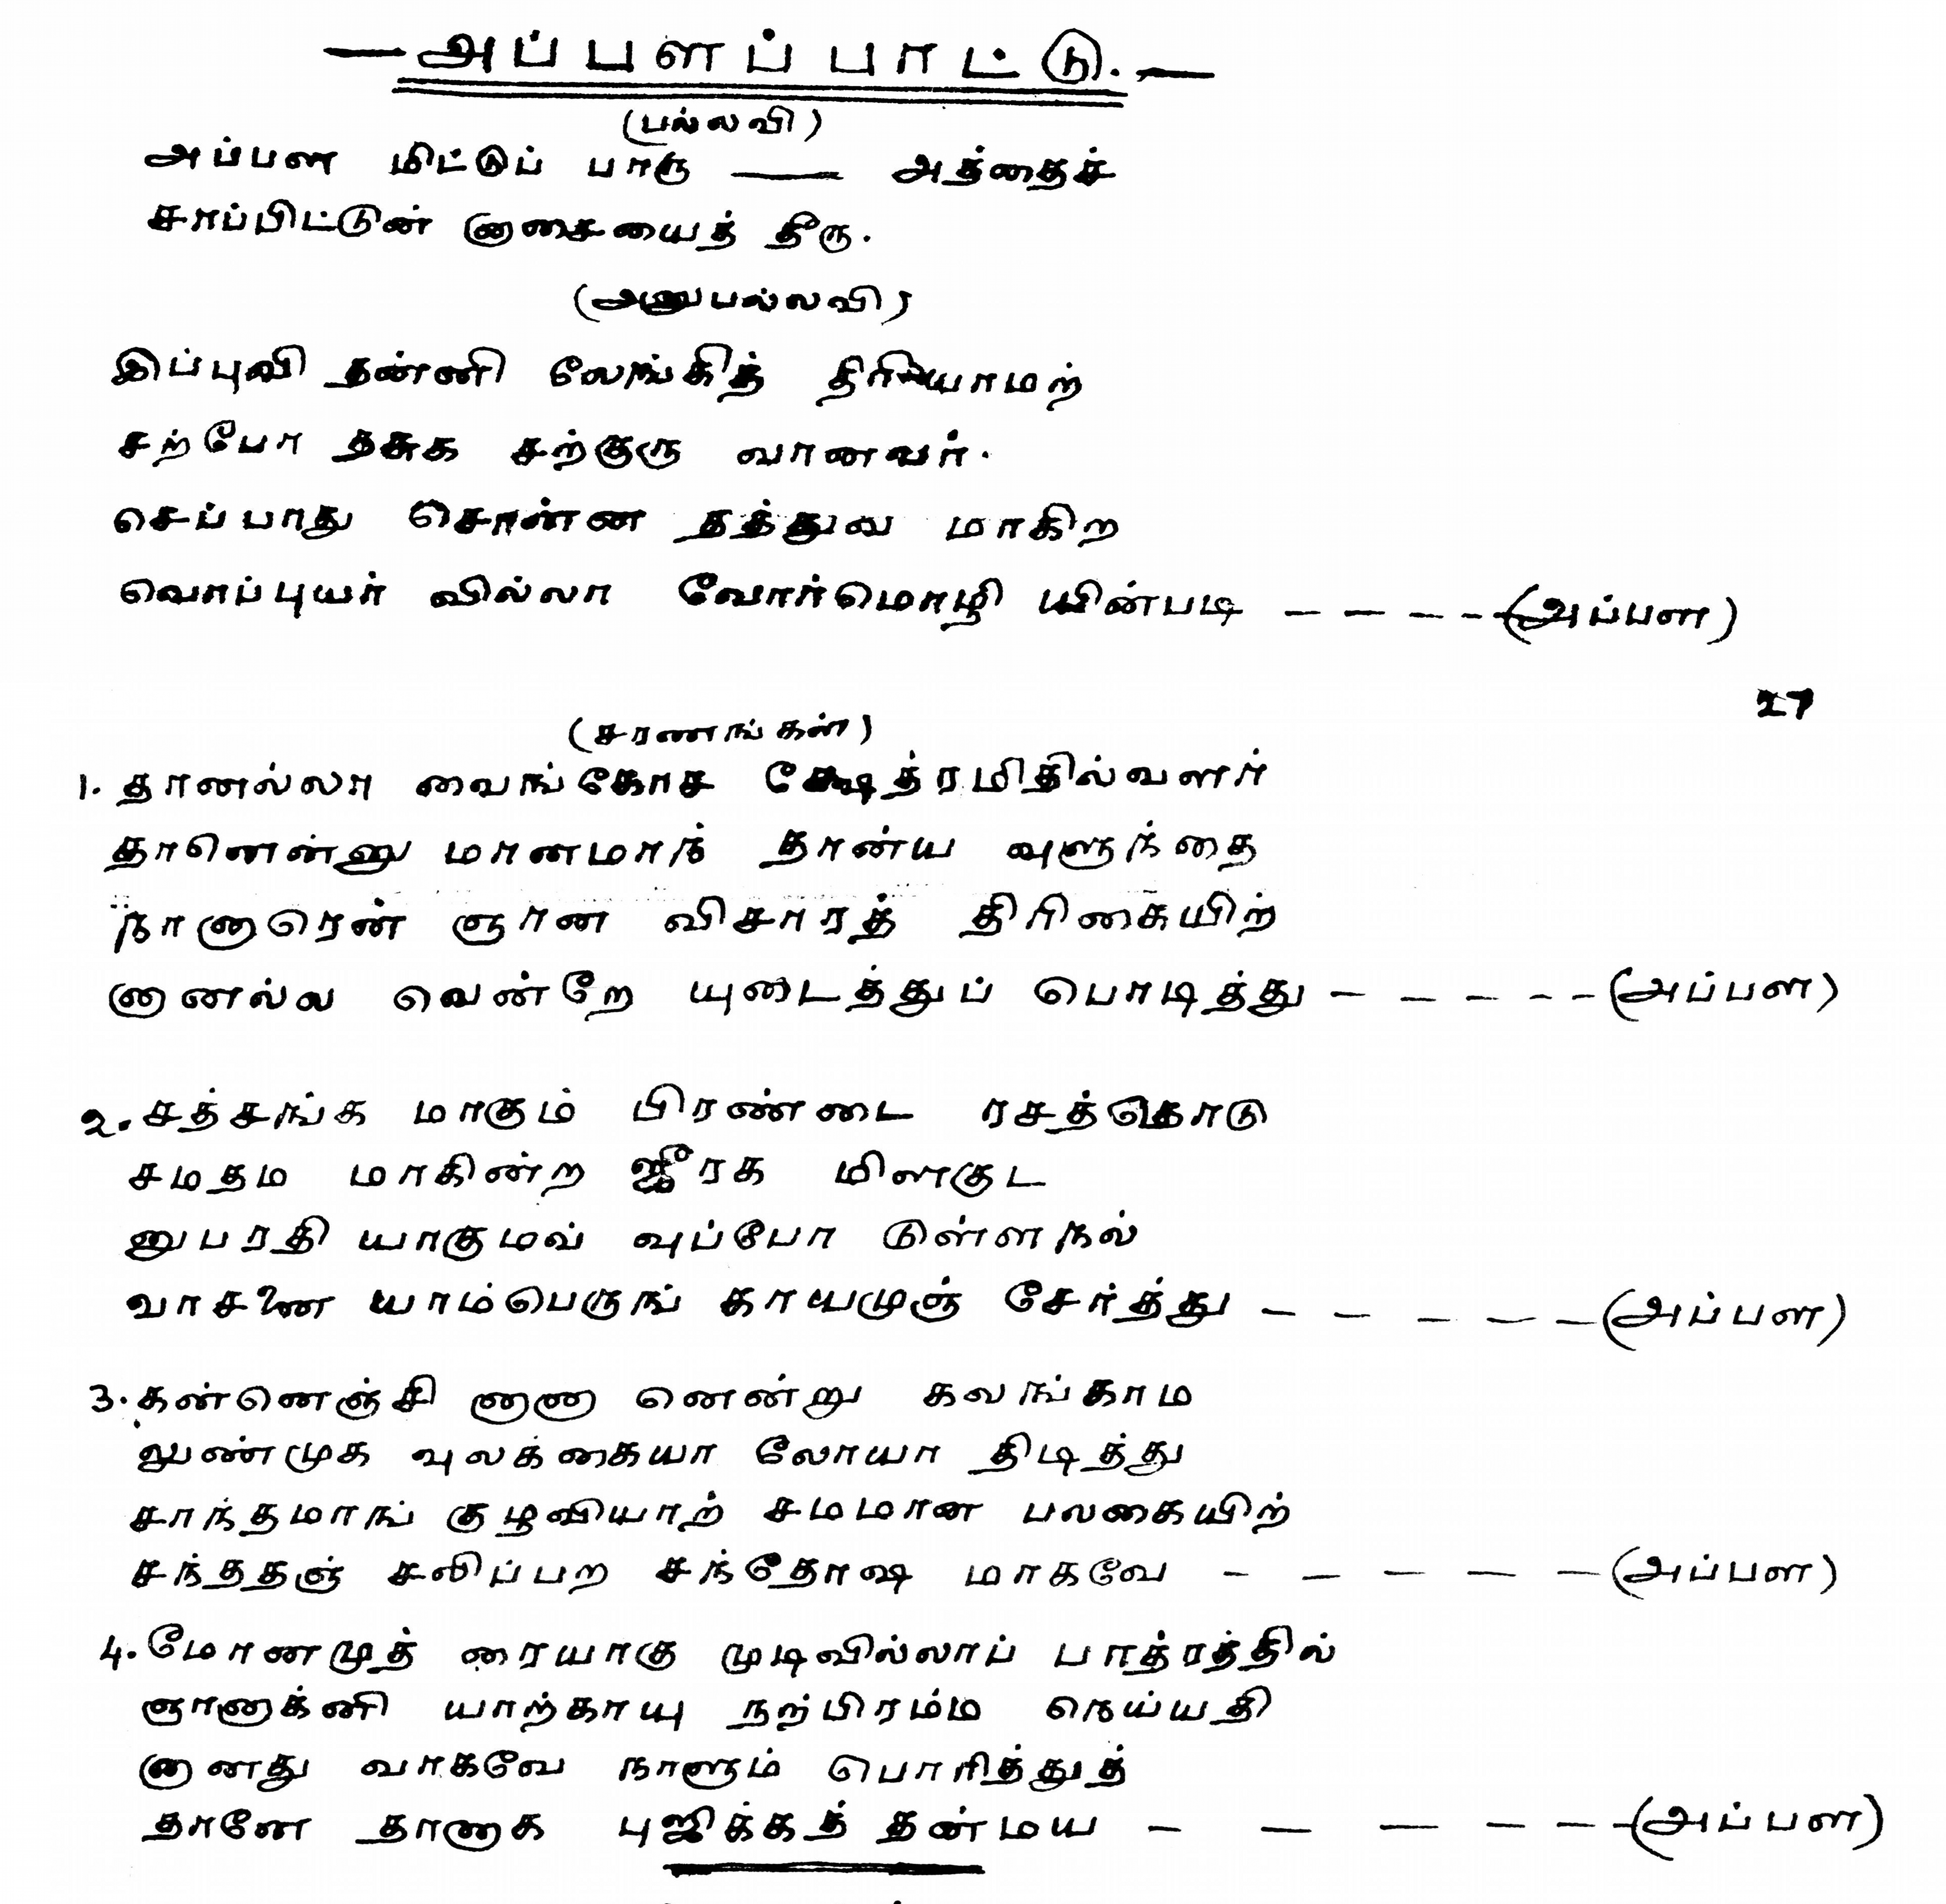 —அப்பளப் பாட்டு.—
(பல்லவி)
அப்பள மிட்டுப் பாரு —— அத்தைச்
சாப்பிட்டுன் னாசையைத் தீரு.
(அனுபல்லவி)
இப்புவி தன்னி லேங்கித் திரியாமற்
சற்போ தசுக சற்குரு வானவர்.
செப்பாது சொன்ன தத்துவ மாகிற
வொப்புயர் வில்லா வோர்மொழி யின்படி — — — - - (அப்பள)
27
(சரணங்கள்)
1. தானல்லா வைங்கோச க்ஷேத்ரமிதில்வளர்
தானென்னு மானமாந் தான்ய வுளுந்தை
நானாரென் ஞான விசாரத் திரிகையிற்
னானல்ல வென்றே யுடைத்துப் பொடித்து — — — - - (அப்பள)
2. சத்சங்க மாகும் பிரண்டை ரசத்தொடு
சமதம மாகின்ற ஜீரக மிளகுட
னுபரதி யாகுமவ் வுப்போ டுள்ளநல்
வாசனை யாம்பெருங் காயமுஞ் சேர்த்து — — — — — (அப்பள)
3. கன்னெஞ்சி னானா னென்று கலங்காம
லுண்முக வுலக்கையா லோயா திடித்து
சாந்தமாங் குழவியாற் சமமான பலகையிற்
சந்ததஞ் சலிப்பற சந்தோஷ மாகவே - — — — — (அப்பள)
4. மோனமுத் ரையாகு முடிவில்லாப் பாத்ரத்தில்
ஞானாக்னி யாற்காயு நற்பிரம்ம நெய்யதி
னானது வாகவே நாளும் பொரித்துத்
தானே தானாக புஜிக்கத் தன்மய - — — — — — (அப்பள)